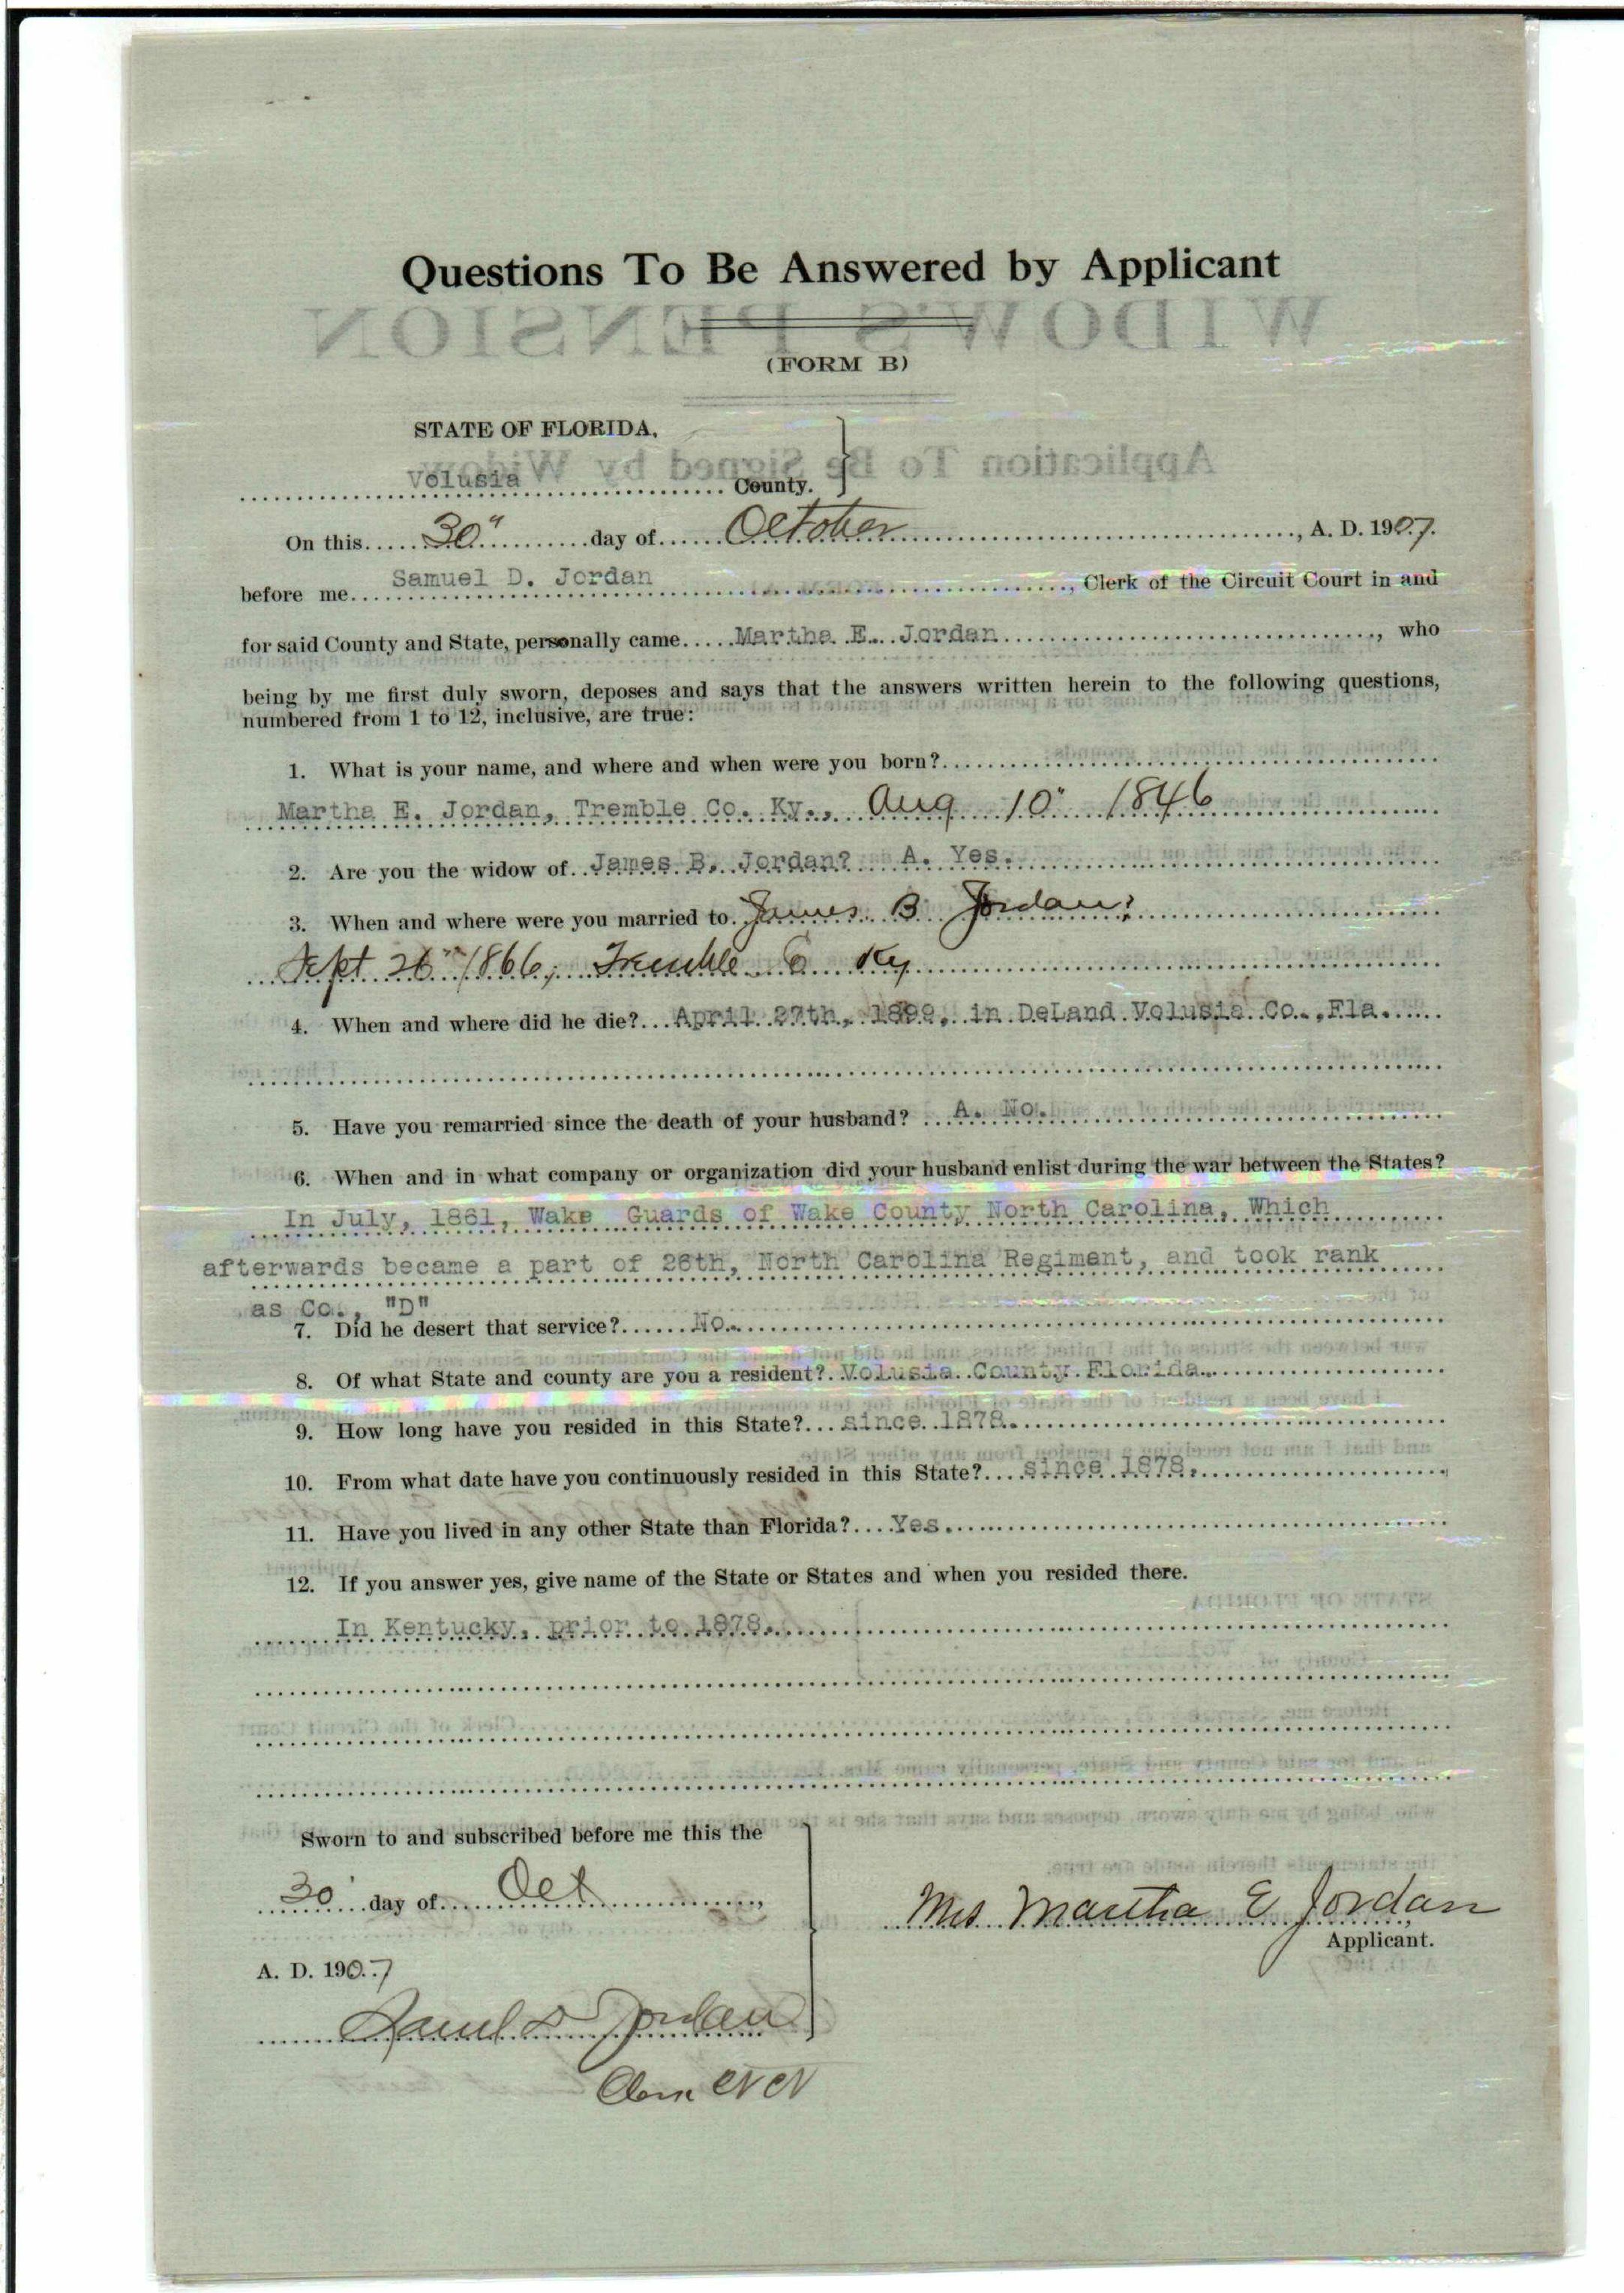 Questions To Be Answered by Applicant
WIDOW'S PENSION
(FORM B)
STATE OF FLORIDA,
Application To Be Signed by Widow
Volusia County.
On this 30" day of October, A. D. 1907.
before me Samuel D. Jordan, Clerk of the Circuit Court in and
for said County and State, personally came Martha E. Jordan, who
being by me first duly sworn, deposes and says that the answers written herein to the following questions,
numbered from 1 to 12, inclusive, are true:
1. What is your name, and where and when were you born?
Martha E. Jordan, Tremble Co. Ky., Aug 10" 1846
2. Are you the widow of James B. Jordan? A. Yes.
3. When and where were you married to James B Jordan?
Sept 1866, Tremble Co Ky
4. When and where did he die? April 27th, 1899, in DeLand Volusia Co., Fla.
5. Have you remarried since the death of your husband? A. No.
6. When and in what company or organization did your husband enlist during the war between the States?
In July, 1861, Wake Guards of Wake County North Carolina, Which
afterwards became a part of 26th, North Carolina Regiment, and took rank
as Co., "D"
7. Did he desert that service? No.
8. Of what State and county are you a resident? Volusia County Florida.
9. How long have you resided in this State? since 1878.
10. From what date have you continuously resided in this State? since 1878.
11. Have you lived in any other State than Florida? Yes.
12. If you answer yes, give name of the State or States and when you resided there.
In Kentucky, prior to 1878.
Sworn to and subscribed before me this the
30" day of Oct,
Mrs Martha E Jordan
Applicant.
A. D. 1907
Saml D Jordan
Clerk